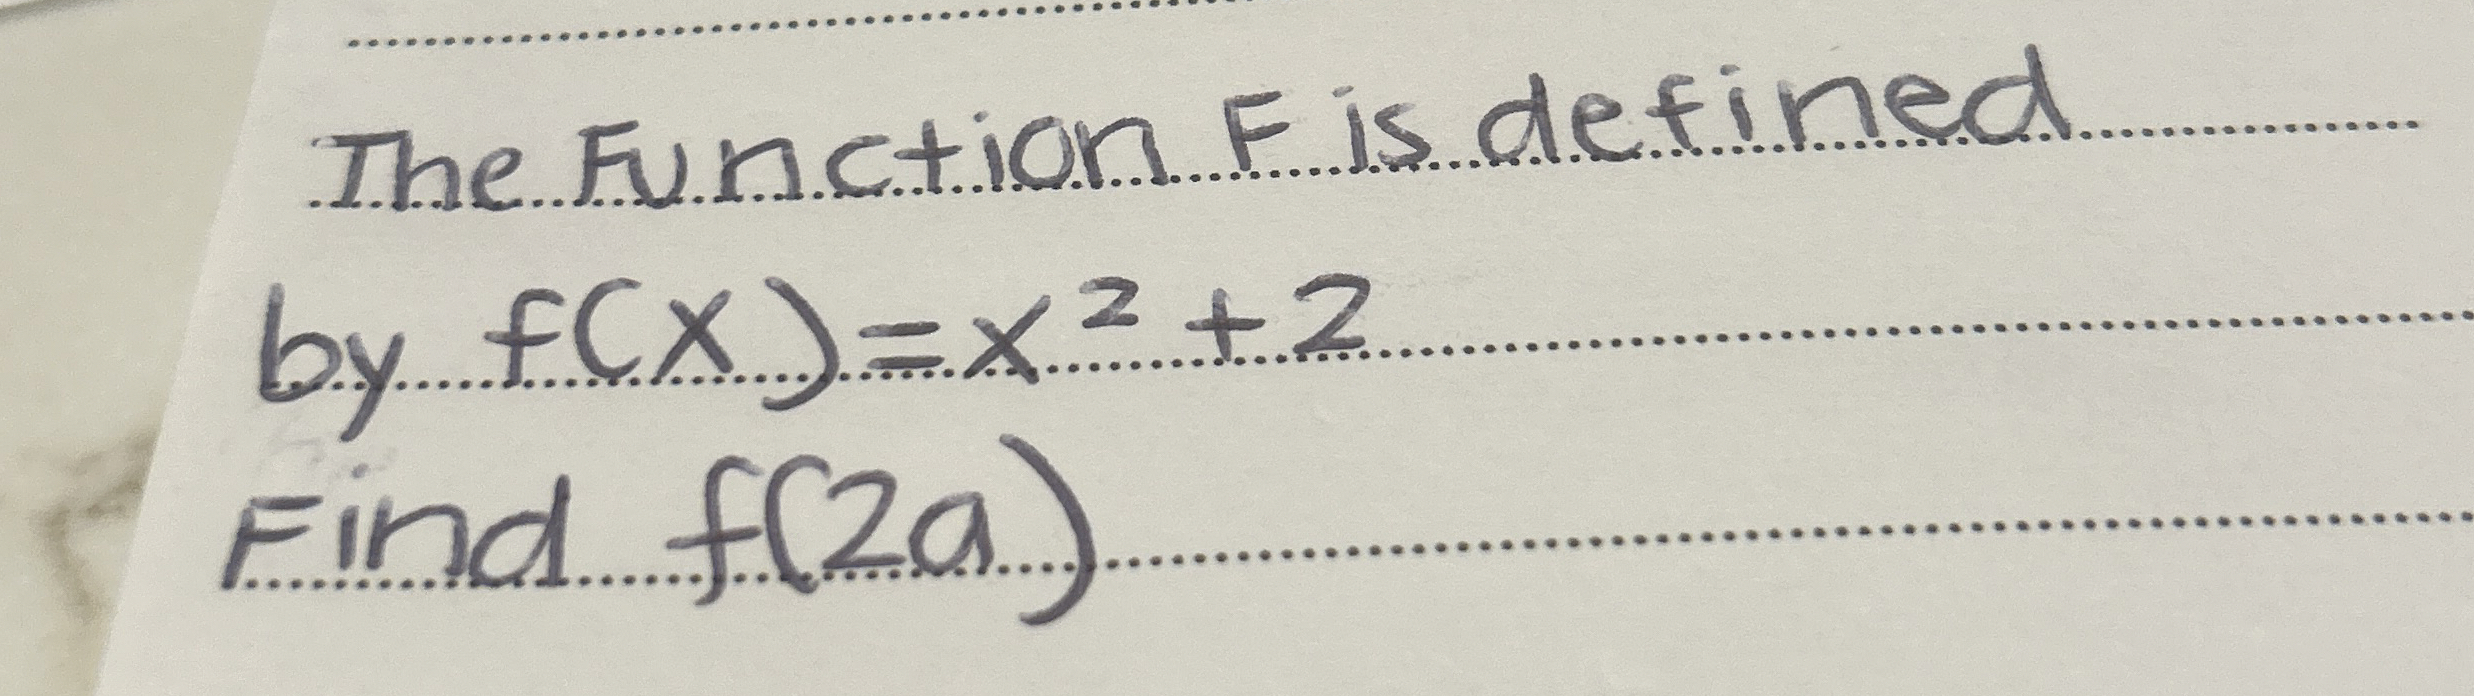 The Function F is defined
by f(x)=x² +2
Find f(2a)